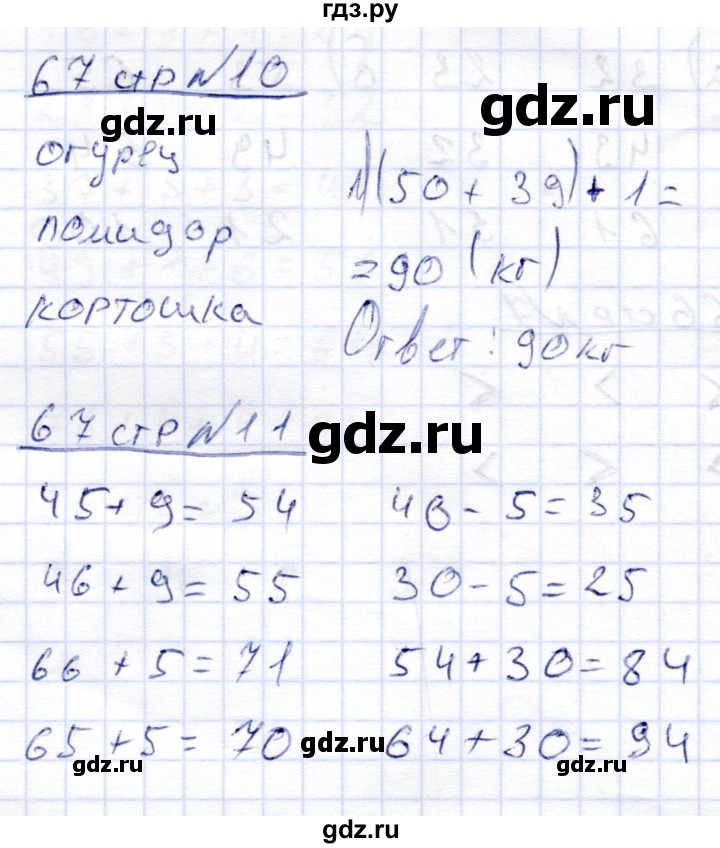 гдз.ру
67 стр №10
gdz.ru
gdz.ru
огурец
1)(50 + 39) + 1 =
помидор
= 90 (кг)
кортошка
Ответ: 90 кг
67 стр №11
gdz.ru
45 + 9 = 54
40 - 5 = 35
46 + 9 = 55
30 - 5 = 25
66 + 5 = 71
54 + 30 = 84
65 + 5 = 70
gdz.ru
64 + 30 = 94
gdz.ru
gdz.ru
gdz.ru